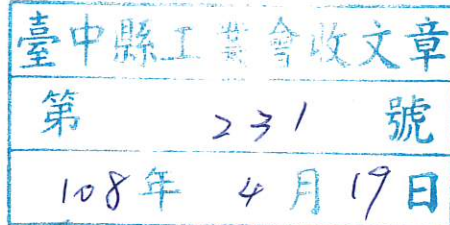 臺中縣工業會收文章
第 231 號
108年 4月19日